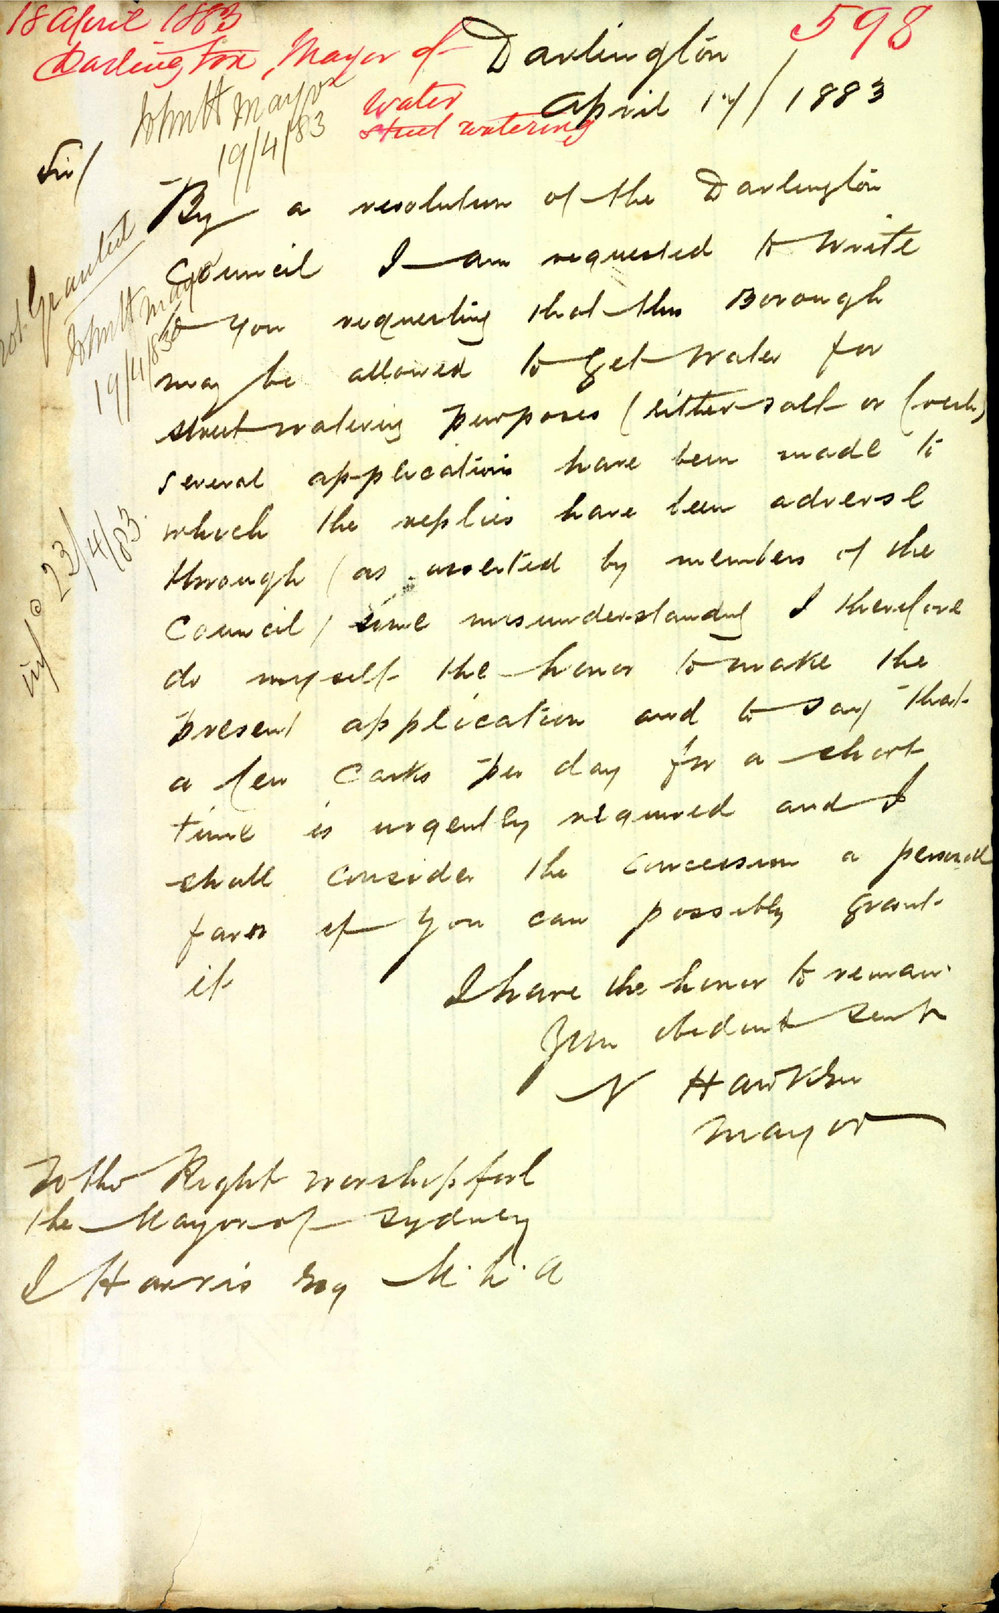 18 April 1883
598
Darlington, Mayor of
Darlington
Water
April 17/1883
Street watering
John H Mayor
19/4/83
Sir/
By a resolution of the Darlington
Council I am requested to write
to you requesting that this Borough
may be allowed to get water for
street watering purposes (either salt or fresh)
several applications have been made to
which the replies have been adverse
through (as asserted by members of the
Council) some misunderstanding I therefore
do myself the honor to make the
present application and to say that
a few Casks per day for a short
time is urgently required and I
shall consider the concession a personal
favor if you can possibly grant
it
I have the honor to remain
Your obedient Servt
N Hawken
Mayor
To the Right worshipful
the Mayor of Sydney
J Harris Esq M.L.A
not Granted
John H Mayor
19/4/83
23/4/83